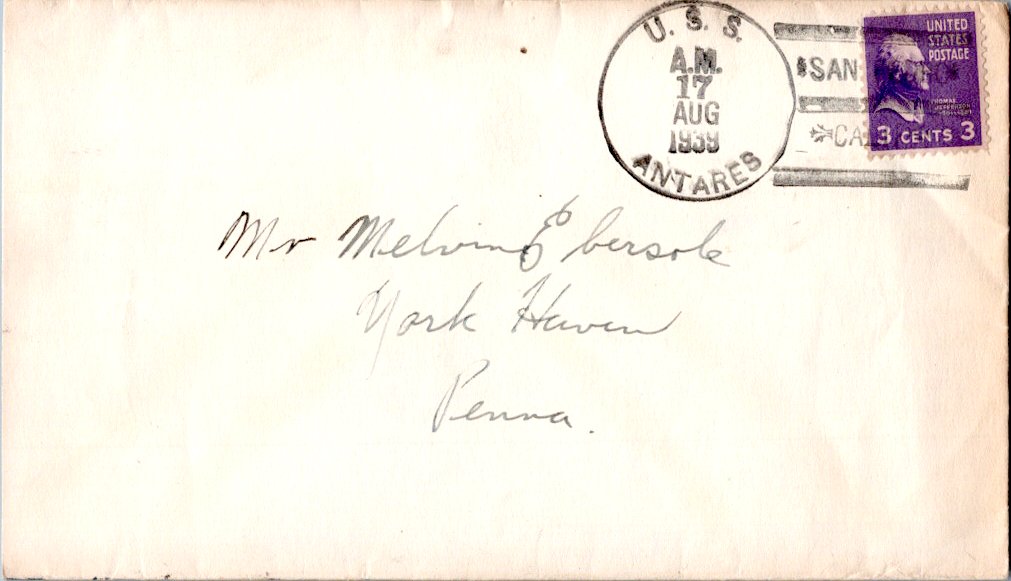 U. S. S.
A.M.
17
AUG
1939
ANTARES
SAN
CA
UNITED
STATES
POSTAGE
THOMAS
JEFFERSON
3 CENTS 3
Mr Melvin Ebersole
York Haven
Penna.